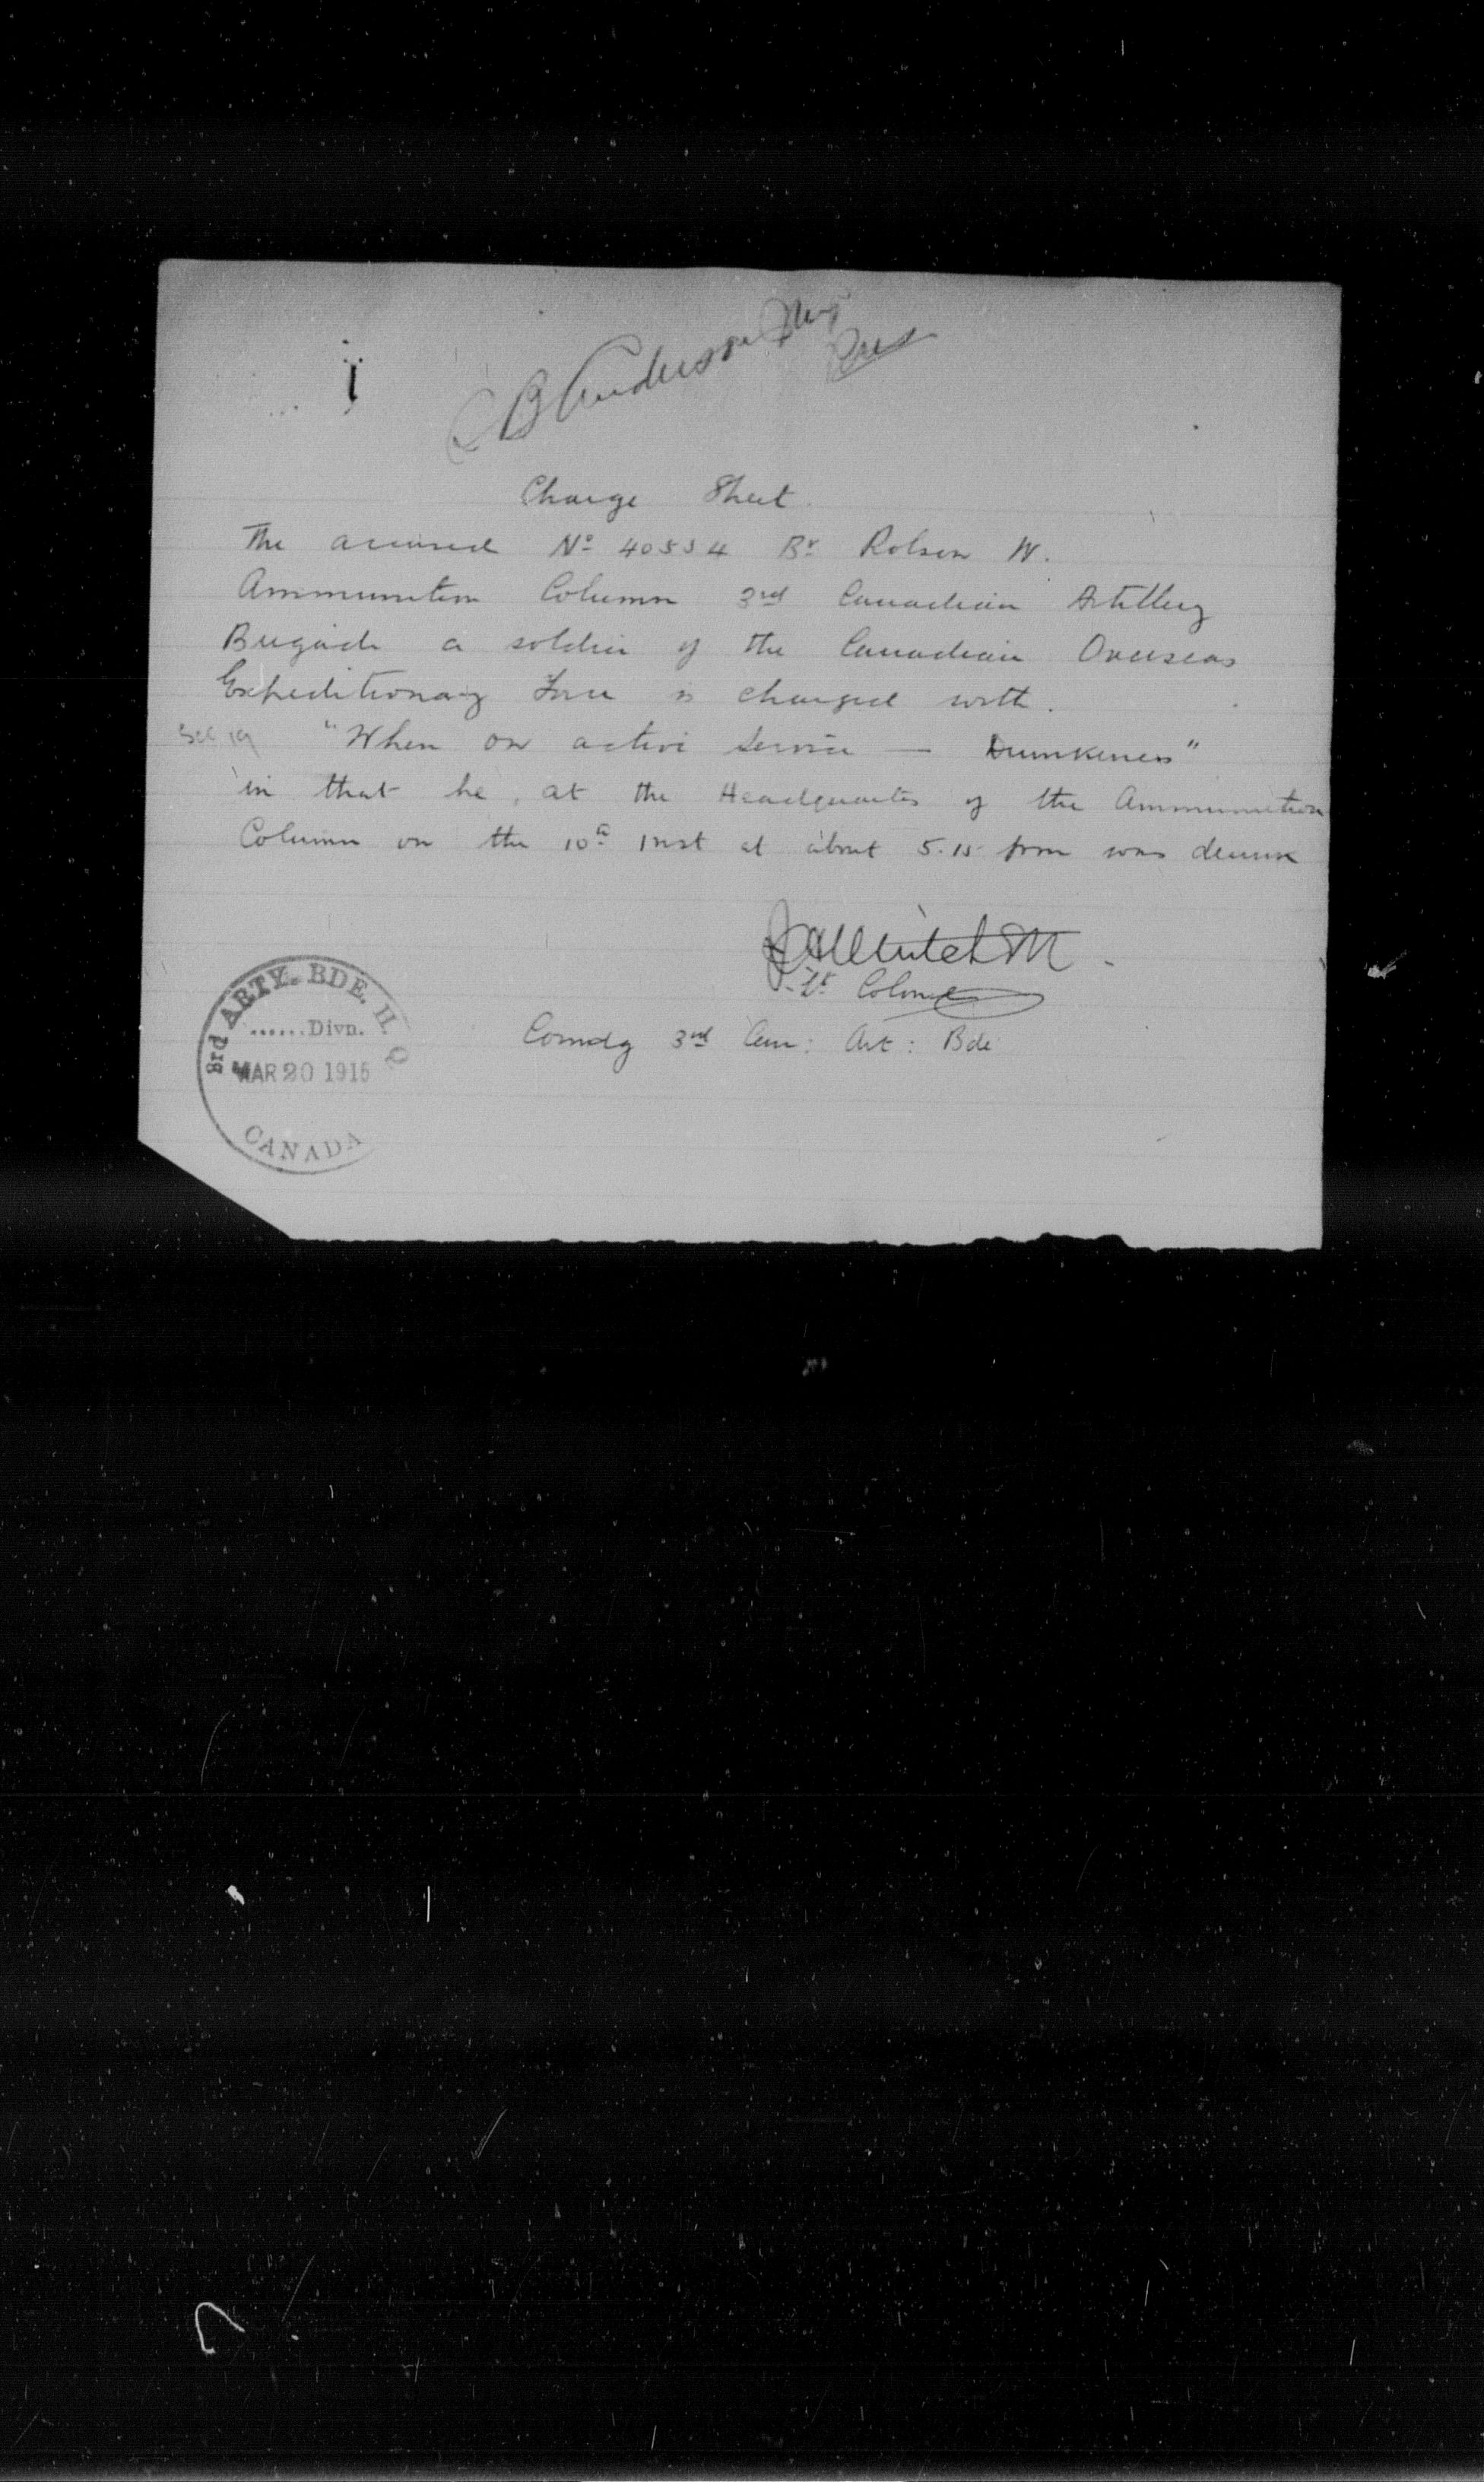 Anderson
Charge Sheet
The accused No 40534 Br Robson W.
Ammunition Column 3rd Canadian Artillery
Brigade a soldier of the Canadian Overseas
Expeditionary Force is charged with.
Sec 19 "When on active service — Drunkeness"
in that he, at the Headquarters of the Ammunition
Column on the 10th inst at about 5.15 pm was drunk
Lt Colonel
Comdg 3rd Can: Art: Bde
3rd ARTY. BDE. H.Q
......Divn.
MAR 20 1915
CANADA